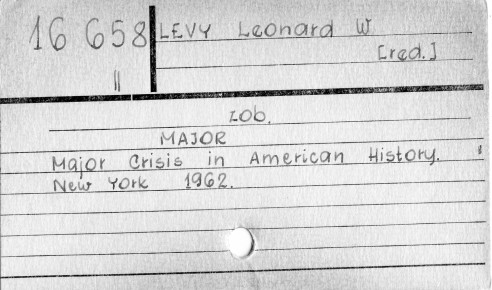 16 658 LEVY Leonard W
[red.]
II
zob.
MAJOR
Major Crisis in American History.
New York 1962.